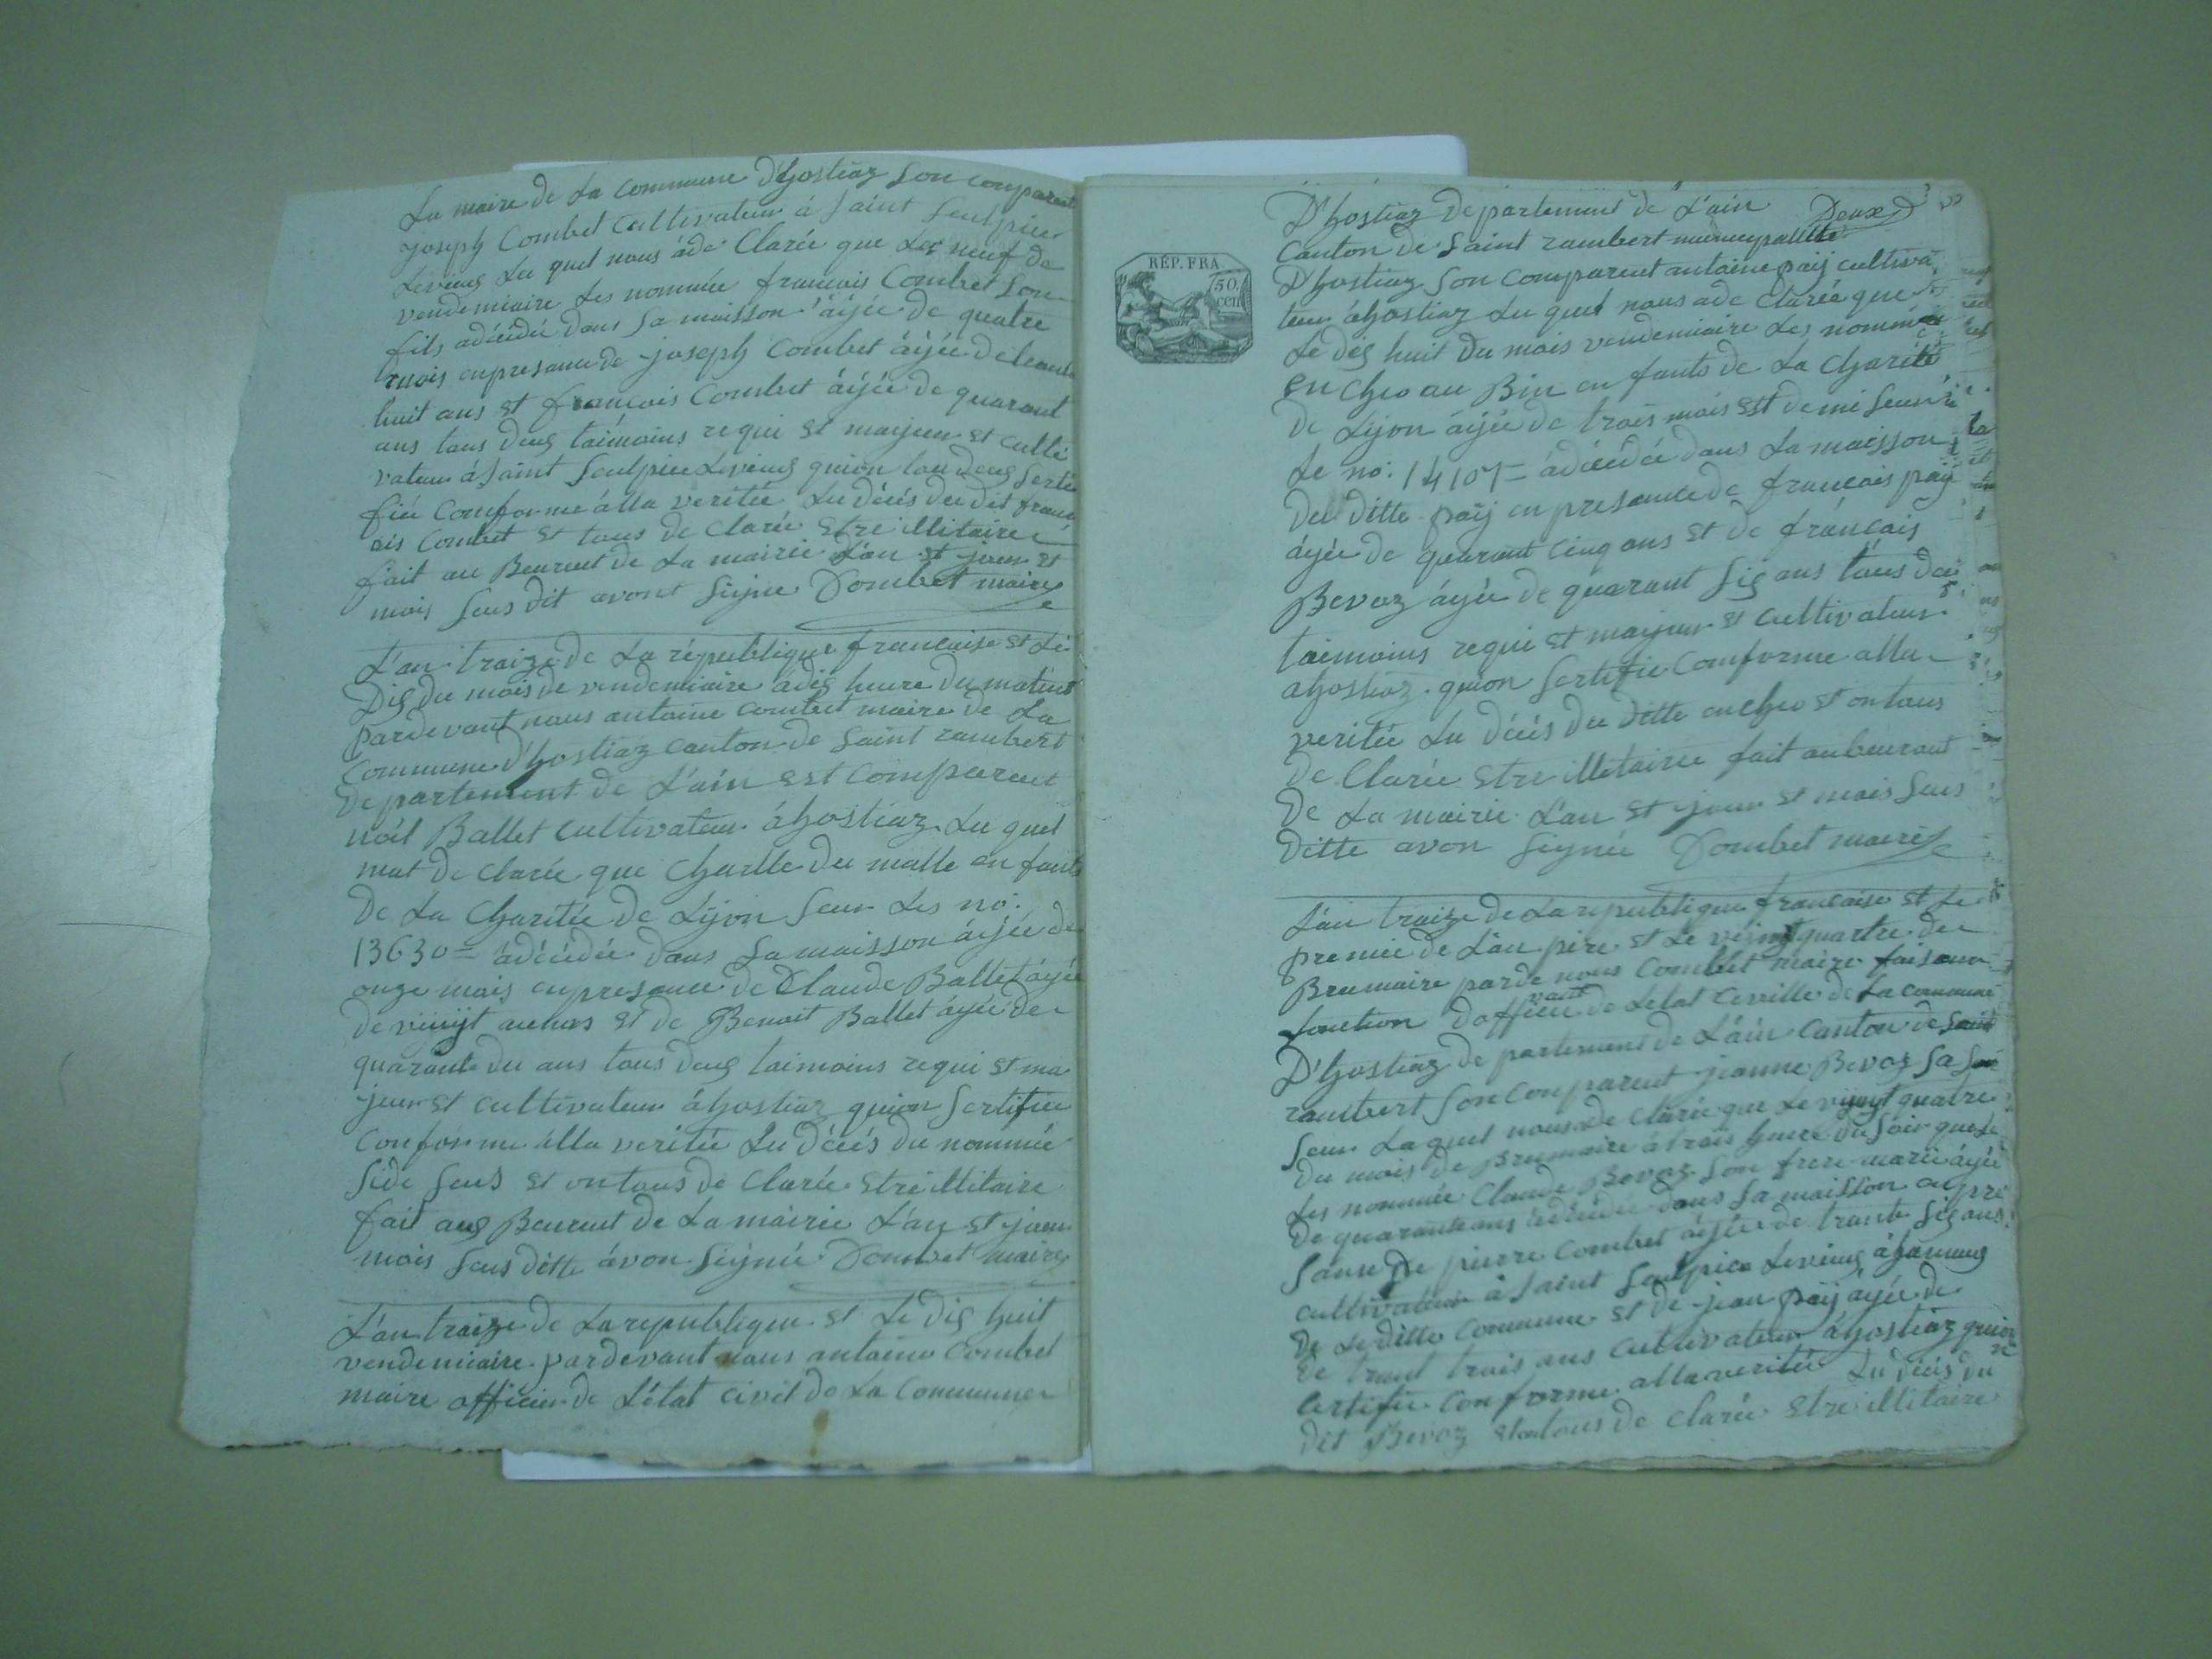 La maire de La commune D'hostiaz son comparent
joseph Combet cultivateur à saint seulpice
Levieus Le quel nous à de Clarée que Les neuf de
vendemiaire Les nommée francois Combet son
fils adécédée dans sa maisson àijée de quatre
mois en presance de joseph Combet àijée de
huit ans et francois Combet àijée de quarant
ans tous deus taimoins requi et majeur et culti
vateur à saint seulpice Levieus quion tou deus serti
fié Comforme àlla veritée Le décés du dit franc
ois Combet et tous de Clarée estre illitaire
fait au Beureut de La mairie L'an et jour et
mois seus dit avont signe Combet maire
L'an traize de La république francaise et Le
Dis du mois de vendemiaire à dis heure du matins
pardevant nous antoine combet maire de La
commune D'hostiaz canton de saint rambert
Departement de L'ain est Comparent
noël Ballet cultivateur àhostiaz Le quel
mat de clarée que Charlle du malle en fants
De La Charitée de Lijon seur Les no.
13630= àdécédée dans sa maisson àijée de
onze mois en presance de Claude Ballet àijée
de vinijt et de Benoit Ballet àijée de
quarante du ans tous deus taimoins requi et ma
jeur et cultivateur àhostiaz quion sertifiée
Conforme àlla veritée Le décés du nommée
side seus et ontous de Clarée estre illitaire
fait aus Beureut de La mairie L'an et jour
mois seus ditte àvon signée Combet maire
L'an traize de La republique et Le dis huit
vendemiaire pardevant nous antoine Combet
maire officier de L'état civil de La Commune
Deux
D'hostiaz Departement de L'ain
Canton de saint rambert
D'hostiaz son comparent antoine paij cultiva
teur àhostiaz Le quel nous ade Clarée que
Le dis huit Du mois vendemiaire Les nommée
en fants de La Charitée
De Lijon àijée de trois mois est demi seur
Le no: 14107= àdécédée dans La maisson
Du Ditte paij en presance de francois paij
àijée de quarant cinq ans et de francois
Bevoz àijée de quarant sis ans tous deu
taimoins requi et majeur et cultivateur
ahostiaz quion sertifié Comforme alla
veritée Le décés du Ditte et ontous
De Clarée estre illitairee fait au beureaut
De La mairie L'an et jour et mois seus
Ditte avon signée Combet maire
L'an traize de La republique francaise et Le
premié de L'an pire et Le veinijt quartre du
Brumaire parde nous Combet maire faisan
vant
fonction D'officié de L'etat Ceville de La commune
D'hostiaz departement de L'ain Canton de saint
rambert son Comparent jeanne Bevoz sa
seur Laquel nous de Clarée que Le vijnyt quatre
Du mois de Brumaire à trois heure du soir que
Les nommée Claude Bevoz son frere marié àijée
De quarante ans adécédée dans sa maisson en pre
sance de pierre Combet àijée de trante sis ans
cultivateur à saint seulpice Levieus àhameus
De Leditte commune et de jean paij àijée de
De trant trois ans cultivateur àhostiaz quion
Certifie Conforme alla veritée Le décés du
Dit Bevoz et tous de Clarée estre illitaire
RÉP. FRA.
50.
cen